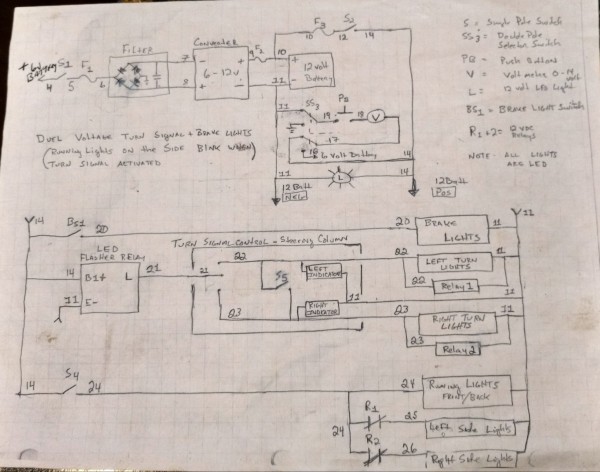 +6v Battery
S1
F1
4
5
6
FILTER
7
8
CONVERTER
6-12v
F2
10
11
12 volt
Battery
F3
10
S2
12
14
11
SS3
19
PB
18
V
17
16
6 Volt Battery
14
11
L
14
12 Batt
Neg
12 Batt
Pos
S = Single Pole Switch
SS3 = Double Pole
Selector Switch
PB = Push Button
V = Volt meter 0-14 volt
L = 12 volt LED Light
BS1 = BRAKE LIGHT Switch
R1+2 = 12 VDC
Relays
NOTE - ALL LIGHTS
ARE LED
DUEL VOLTAGE TURN SIGNAL + BRAKE LIGHTS
(Running Lights on the SIDE Blink WHEN)
(TURN SIGNAL ACTIVATED)
14
BS1
20
20
BRAKE
LIGHTS
11
11
LED
FLASHER RELAY
14
B1+
L
21
11
E-
TURN SIGNAL CONTROL - Steering Column
21
22
S5
LEFT
INDICATOR
11
RIGHT
INDICATOR
23
22
LEFT TURN
LIGHTS
11
22
Relay 1
11
23
RIGHT TURN
LIGHTS
11
23
Relay 2
14
S4
24
24
RUNNING LIGHTS
FRONT/BACK
24
R1
25
Left Side Lights
R2
26
Right Side Lights